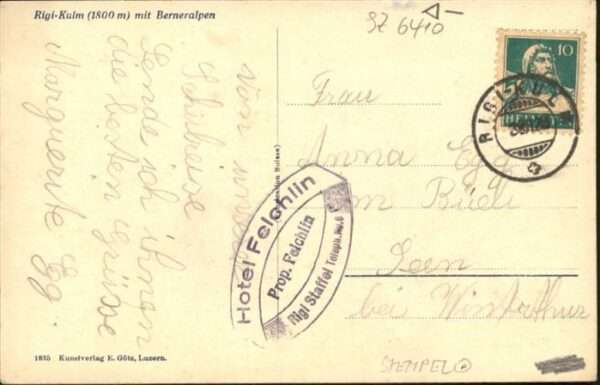 Rigi-Kulm (1800 m) mit Berneralpen
SZ 6410
10
HELVETIA
RIGI-KULM
Von unserer
Schulreise
sende ich ihnen
die besten Grüsse
Marguerite Egg.
Frau
Anna Egg
im Büeli
Seen
bei Winterthur
Hotel Felchlin
Prop. Felchlin
Rigi Staffel Teleph. No. 6
1835 Kunstverlag E. Götz, Luzern.
STEMPEL